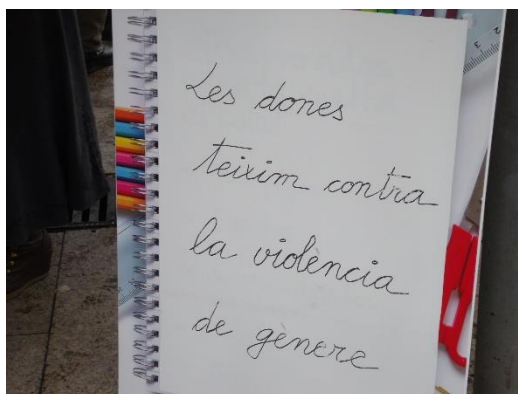 Les dones
teixim contra
la violència
de gènere